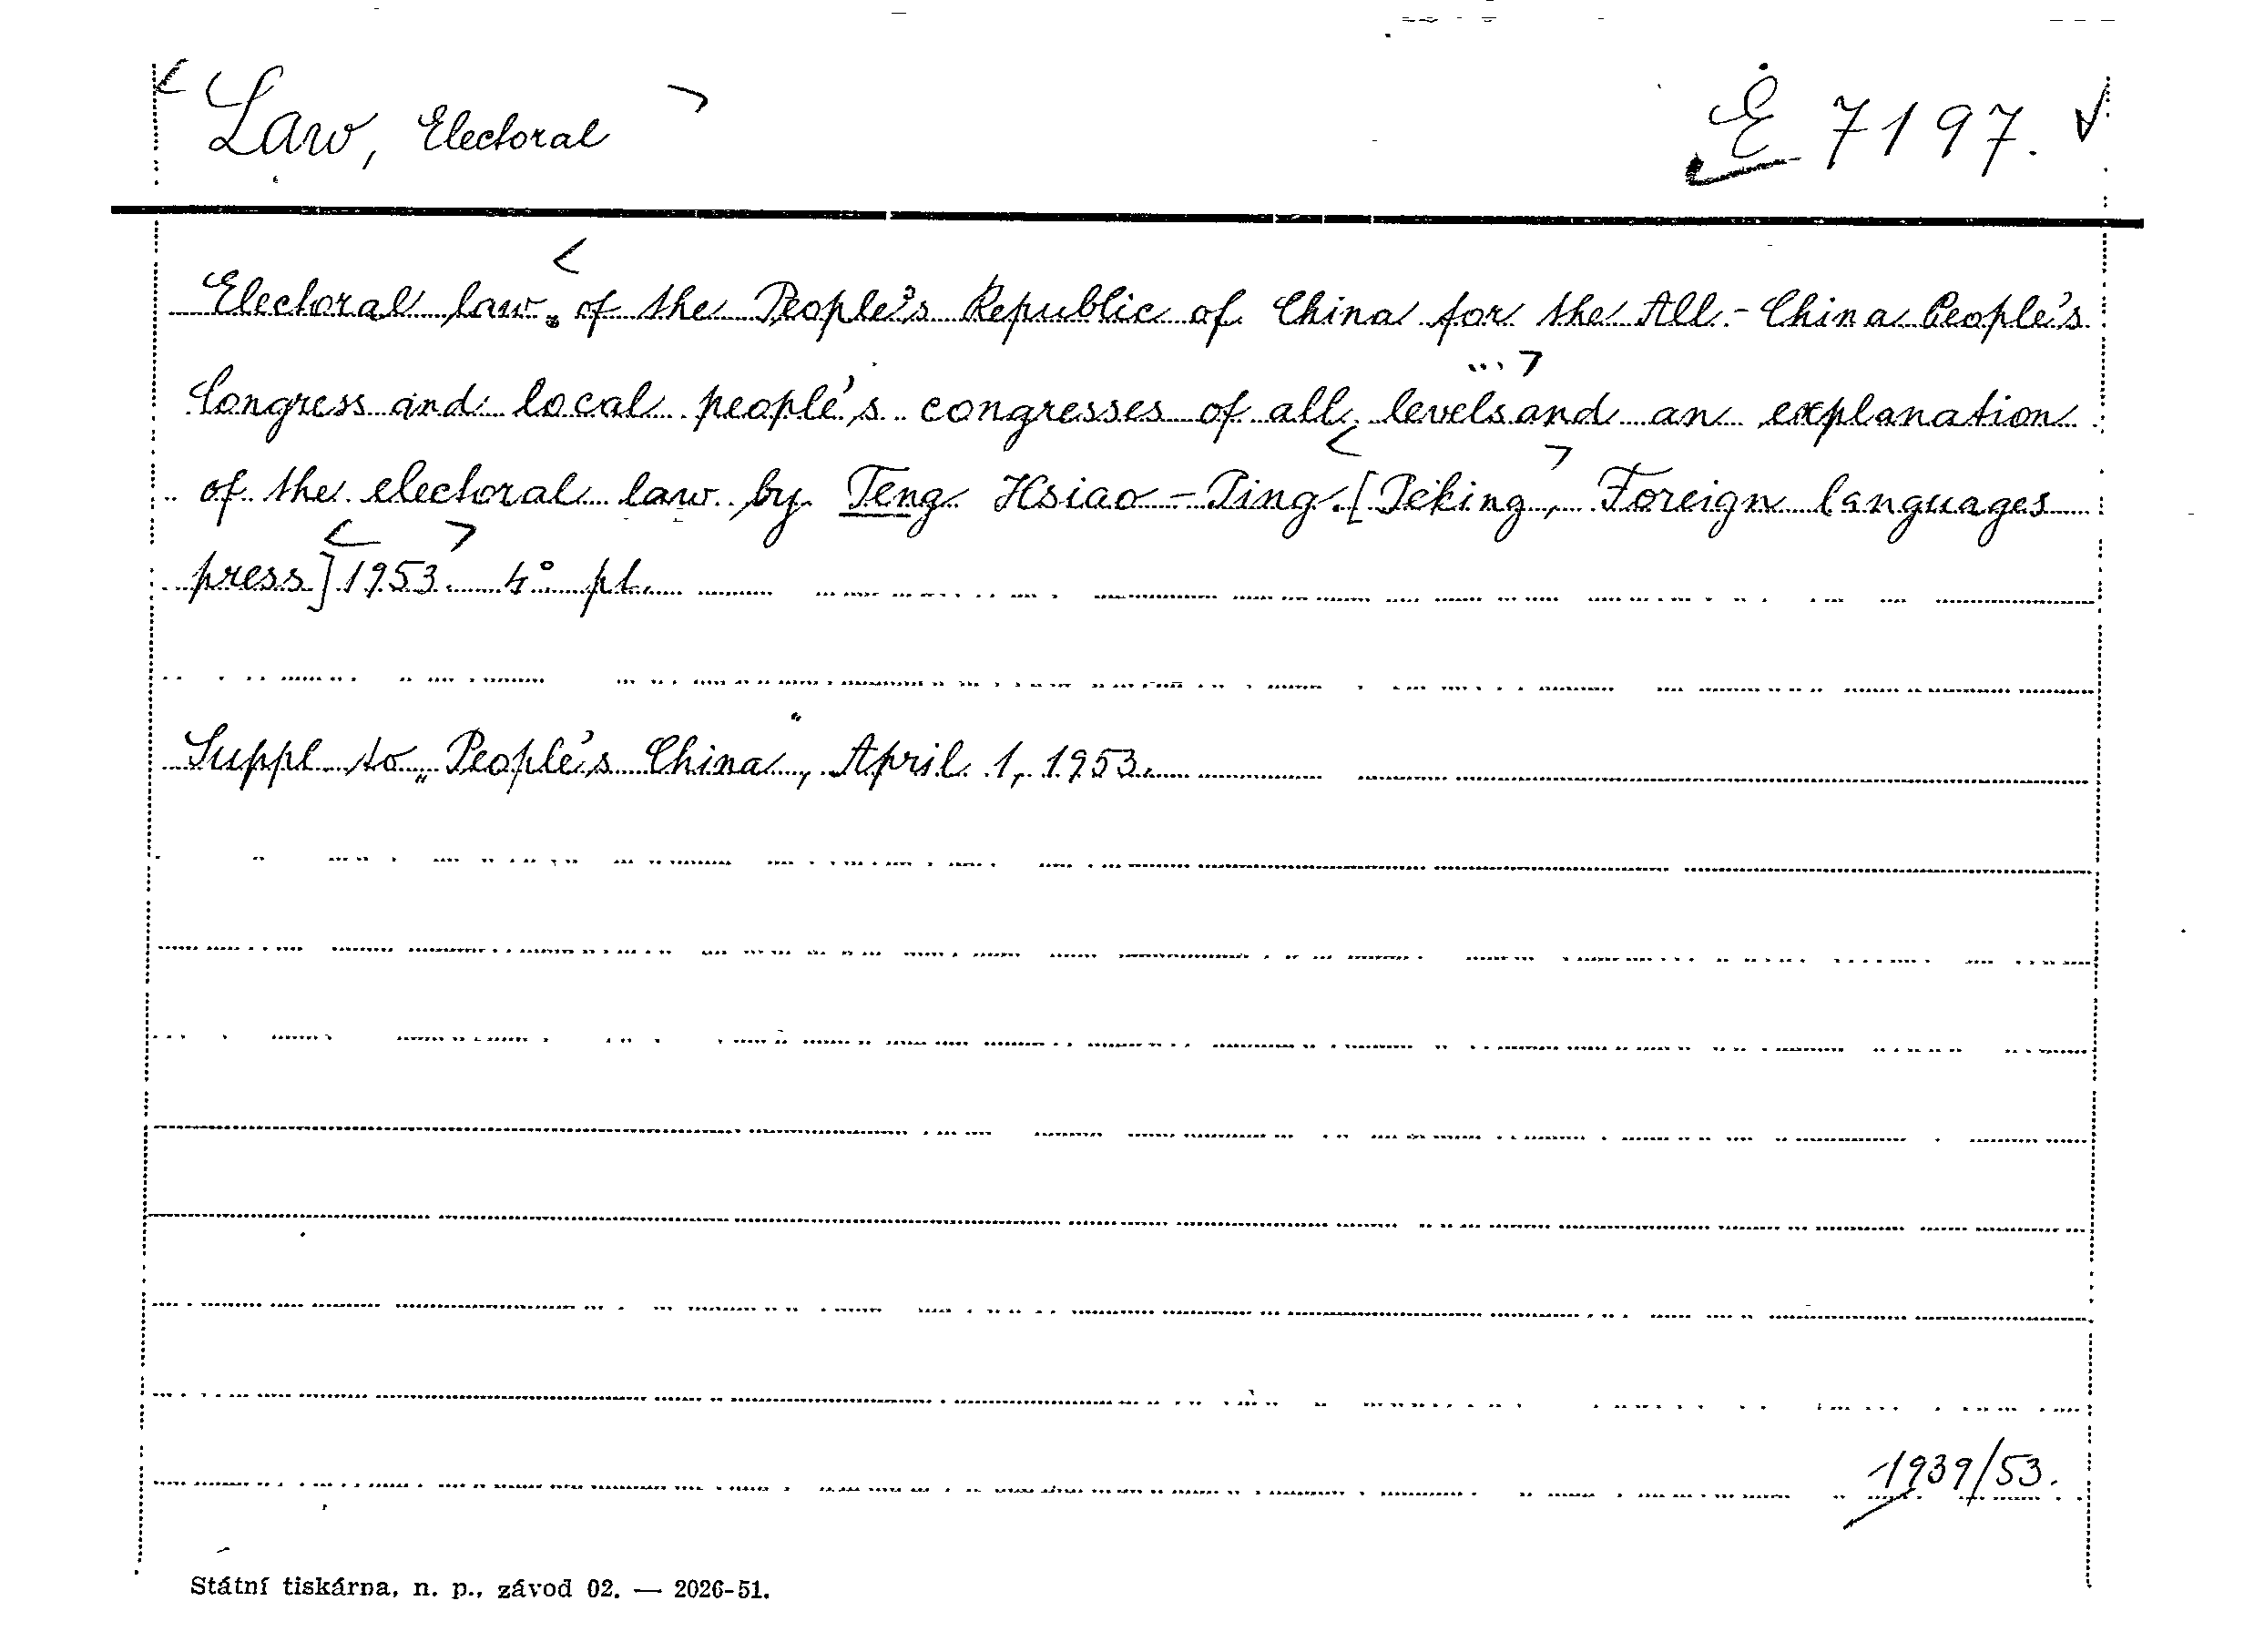 Law, Electoral
E 7197.
Electoral law of the People's Republic of China for the All-China People's
Congress and local people's congresses of all levels and an explanation
of the electoral law by Teng Hsiao-Ping. [Peking, Foreign languages
press] 1953. 4° pt.
Suppl. to „People's China", April 1, 1953.
1939/53.
Státní tiskárna, n. p., závod 02. — 2026-51.